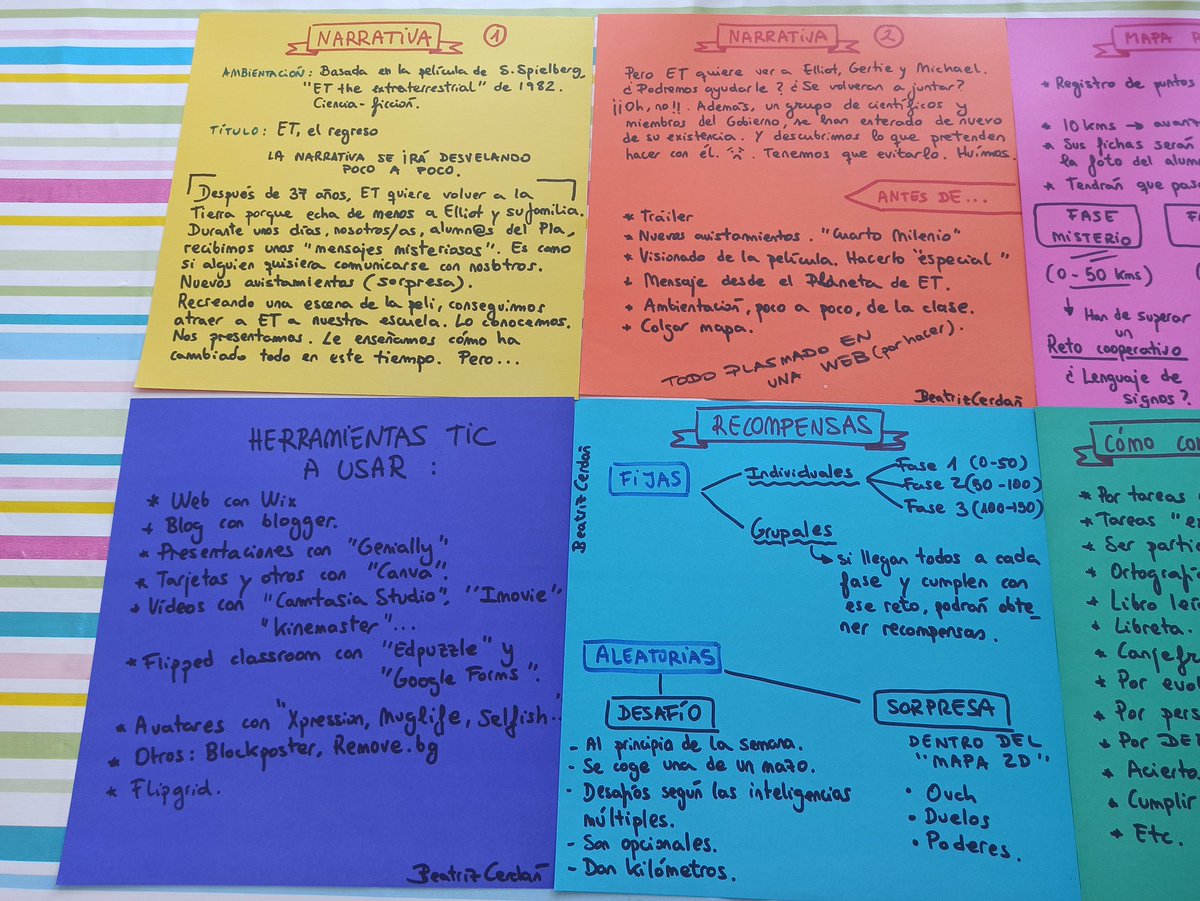 NARRATIVA 1
AMBIENTACIÓN: Basada en la película de S. Spielberg
"ET the extraterrestrial" de 1982.
Ciencia-ficción.
TÍTULO: ET, el regreso
LA NARRATIVA SE IRÁ DESVELANDO
POCO A POCO.
Después de 37 años, ET quiere volver a la
Tierra porque echa de menos a Elliot y su familia.
Durante unos días, nosotros/as, alumn@s del Pla,
recibimos unos "mensajes misteriosos". Es como
si alguien quisiera comunicarse con nosotros.
Nuevos avistamientos (sorpresa).
Recreando una escena de la peli, conseguimos
atraer a ET a nuestra escuela. Lo conocemos.
Nos presentamos. Le enseñamos cómo ha
cambiado todo en este tiempo. Pero...
NARRATIVA 2
Pero ET quiere ver a Elliot, Gertie y Michael.
¿Podremos ayudarle? ¿Se volveran a juntar?
¡¡Oh, no!!. Además, un grupo de científicos y
miembros del Gobierno, se han enterado de nuevo
de su existencia. Y descubrimos lo que pretenden
hacer con él. Tenemos que evitarlo. Huímos.
ANTES DE...
* Tráiler
* Nuevos avistamientos. "Cuarto Milenio"
* Visionado de la película. Hacerlo "especial"
* Mensaje desde el Planeta de ET.
* Ambientación, poco a poco, de la clase.
* Colgar mapa.
TODO PLASMADO EN
UNA WEB (por hacer).
Beatriz Cerdañ
MAPA
* Registro de puntos
* 10 kms →
* Sus fichas serán
la foto del
* Tendrán que
FASE
MISTERIO
(0-50 kms)
↓ Han de superar
un
Reto cooperativo
¿Lenguaje de
signos?
HERRAMIENTAS TIC
A USAR:
* Web con Wix
* Blog con blogger.
* Presentaciones con "Genially".
* Tarjetas y otros con "Canva".
* Vídeos con "Camtasia Studio". "Imovie"
"kinemaster"...
* Flipped classroom con "Edpuzzle" y
"Google Forms".
* Avatares con "Xpression, Muglife, Selfish..
* Otros: Blockposter, Remove.bg
* Flipgrid.
Beatriz Cerdañ
Beatriz Cerdañ
RECOMPENSAS
FIJAS
Individuales
Fase 1 (0-50)
Fase 2 (50-100)
Fase 3 (100-150)
Grupales
si llegan todos a cada
fase y cumplen con
ese reto, podrán obte
ner recompensas.
ALEATORIAS
DESAFÍO
- Al principio de la semana.
- Se coge una de un mazo.
- Desafíos según las inteligencias
múltiples.
- Son opcionales.
- Dan kilómetros.
SORPRESA
DENTRO DEL
"MAPA 2D"
• Ouch
• Duelos
• Poderes.
CÓMO
* Por tareas
* Tareas
* Ser
*
* Libro
* Libreta.
*
* Por
* Por
* Por
* Acierto
* Cumplir
* Etc.